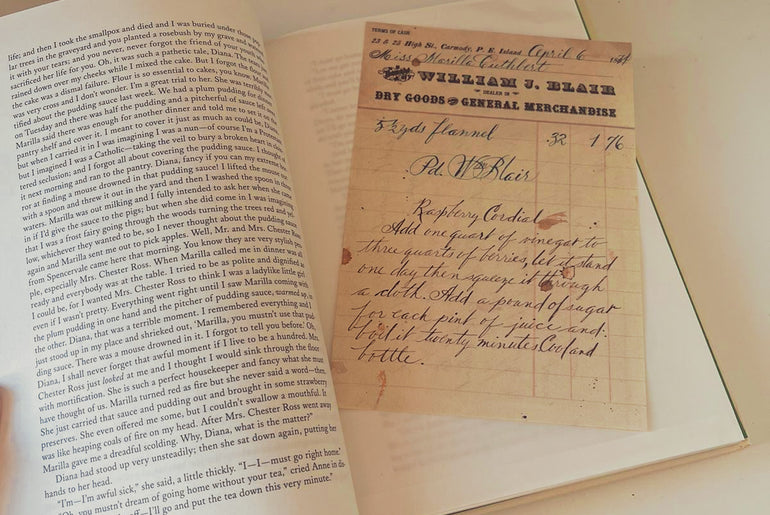 life; and then I took the smallpox and died and I was buried under those pop-
lar trees in the graveyard and you planted a rosebush by my grave and watered
it with your tears; and you never, never forgot the friend of your youth who
sacrificed her life for you. Oh, it was such a pathetic tale, Diana. The tears
rained down over my cheeks while I mixed the cake. But I forgot the flour and
the cake was a dismal failure. Flour is so essential to cakes, you know. Marilla
was very cross and I don't wonder. I'm a great trial to her. She was terribly mor-
tified about the pudding sauce last week. We had a plum pudding for dinner
on Tuesday and there was half the pudding and a pitcherful of sauce left over.
Marilla said there was enough for another dinner and told me to set it on the
pantry shelf and cover it. I meant to cover it just as much as could be, Diana,
but when I carried it in I was imagining I was a nun—of course I'm a Protestant
but I imagined I was a Catholic—taking the veil to bury a broken heart in clois-
tered seclusion; and I forgot all about covering the pudding sauce. I thought of
it next morning and ran to the pantry. Diana, fancy if you can my extreme hor-
ror at finding a mouse drowned in that pudding sauce! I lifted the mouse out
with a spoon and threw it out in the yard and then I washed the spoon in three
waters. Marilla was out milking and I fully intended to ask her when she came
in if I'd give the sauce to the pigs; but when she did come in I was imagining
that I was a frost fairy going through the woods turning the trees red and yel-
low, whichever they wanted to be, so I never thought about the pudding sauce
again and Marilla sent me out to pick apples. Well, Mr. and Mrs. Chester Ross
from Spencervale came here that morning. You know they are very stylish peo-
ple, especially Mrs. Chester Ross. When Marilla called me in dinner was all
ready and everybody was at the table. I tried to be as polite and dignified as
I could be, for I wanted Mrs. Chester Ross to think I was a ladylike little girl
even if I wasn't pretty. Everything went right until I saw Marilla coming with
the plum pudding in one hand and the pitcher of pudding sauce, warmed up, in
the other. Diana, that was a terrible moment. I remembered everything and I
just stood up in my place and shrieked out, 'Marilla, you mustn't use that pud-
ding sauce. There was a mouse drowned in it. I forgot to tell you before.' Oh,
Diana, I shall never forget that awful moment if I live to be a hundred. Mrs.
Chester Ross just looked at me and I thought I would sink through the floor
with mortification. She is such a perfect housekeeper and fancy what she must
have thought of us. Marilla turned red as fire but she never said a word—then.
She just carried that sauce and pudding out and brought in some strawberry
preserves. She even offered me some, but I couldn't swallow a mouthful. It
was like heaping coals of fire on my head. After Mrs. Chester Ross went away
Marilla gave me a dreadful scolding. Why, Diana, what is the matter?"
Diana had stood up very unsteadily; then she sat down again, putting her
hands to her head.
"I'm—I'm awful sick," she said, a little thickly. "I—I—must go right home."
"Oh, you mustn't dream of going home without your tea," cried Anne in dis-
off—I'll go and put the tea down this very minute."
TERMS OF CASH
23 & 25 High St., Carmody, P. E. Island April 6
Miss Marilla Cuthbert
WILLIAM J. BLAIR
DEALER IN
DRY GOODS AND GENERAL MERCHANDISE
5 1/2 yds flannel 32 1 76
Pd. Wm Blair
Raspberry Cordial
Add one quart of vinegar to
three quarts of berries, let it stand
one day then squeeze it through
a cloth. Add a pound of sugar
for each pint of juice and
boil it twenty minutes Cool and
bottle.